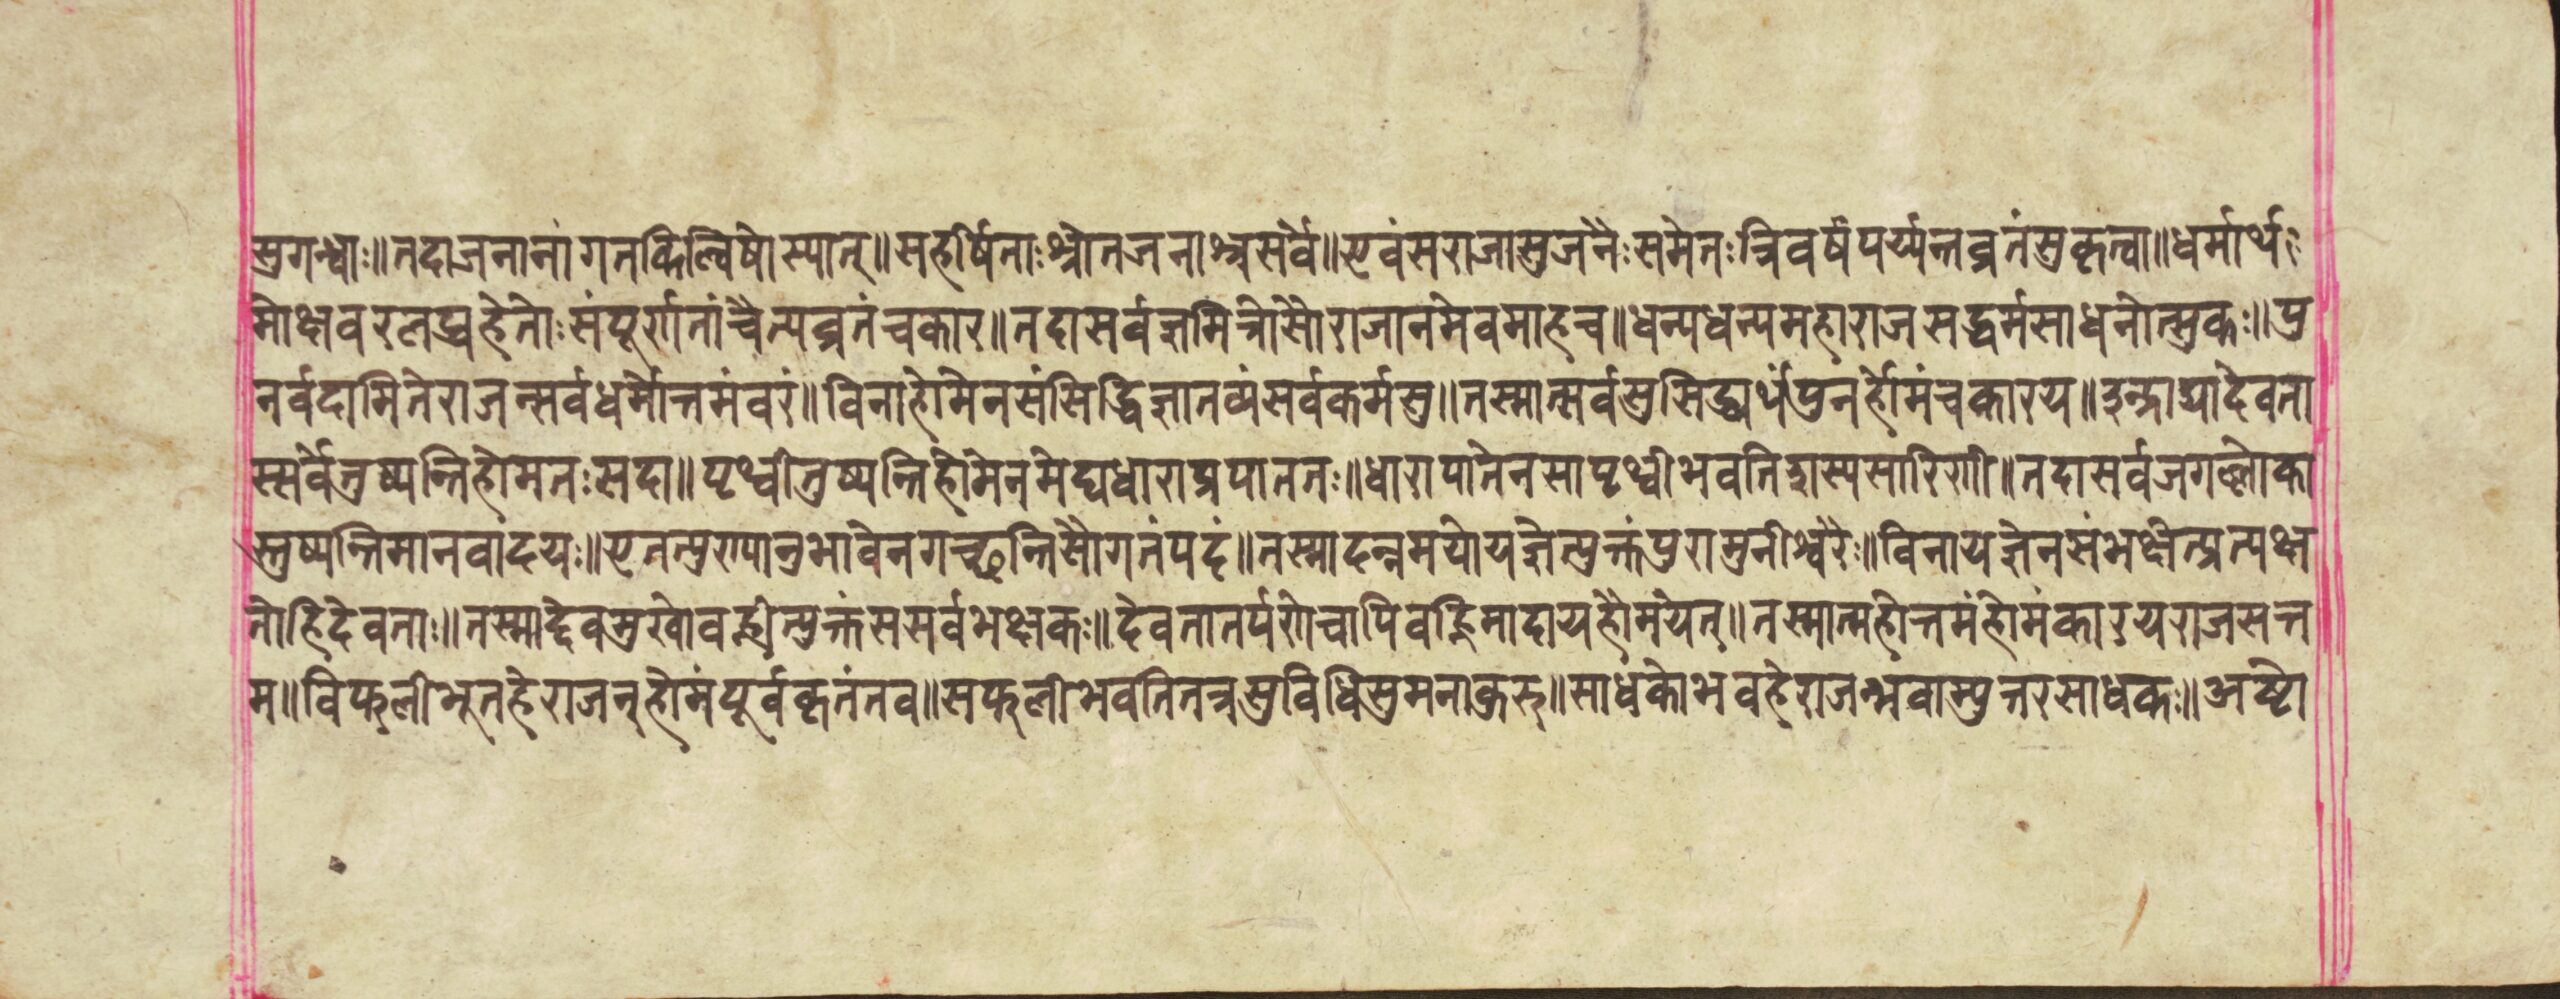 सुगन्धाः॥तदाजनानांगतकिल्विषोस्यात्॥सहर्षिताःश्रोतजनाश्चसर्वे॥एवंसराजासुजनैःसमेतःत्रिवर्षंपर्य्यन्तव्रतंसुकृत्वा॥धर्मार्थ
मोक्षवरलब्धहेतोःसंपूर्णतांचैत्यव्रतंचकार॥तदासर्वज्ञमित्रोसौराजानमेवमाहच॥धन्यधन्यमहाराजसद्धर्मसाधनोत्सुकः॥पु
नर्वदामितेराजन्सर्वधर्मोत्तमंवरं॥विनाहोमेनसंसिद्धिज्ञातव्यंसर्वकर्मसु॥तस्मात्सर्वसुसिद्ध्यर्थंपुनर्होमंचकारय॥इन्द्राद्यादेवता
स्सर्वेतुष्यन्तिहोमतःसदा॥पृथ्वीतुष्यन्तिहोमेनमेघधाराप्रपाततः॥धारापातेनसापृथ्वीभवतिशस्यसारिणी॥तदासर्वजगल्लोका
स्तुष्यन्तिमानवादयः॥एतत्पुण्यानुभावेनगच्छन्तिसौगतंपदं॥तस्मादन्नमयोयज्ञोत्प्रुक्तंपुरामुनीश्वरैः॥विनायज्ञेनसंभक्षेत्प्रत्यक्ष
नोहिदेवताः॥तस्माद्देवमुखोवह्नीत्प्रुक्तंससर्वभक्षकः॥देवतातर्पणेचापिवह्निमादायहोमयेत्॥तस्मात्महोत्तमंहोमंकारयराजसत्त
म॥विफलीभूतहेराजन्होमंपूर्वकृतंतव॥सफलीभवतितत्रसुविधिसुमनाकुरु॥साधकोभवहेराजन्भवाम्युत्तरसाधकः॥अष्टो